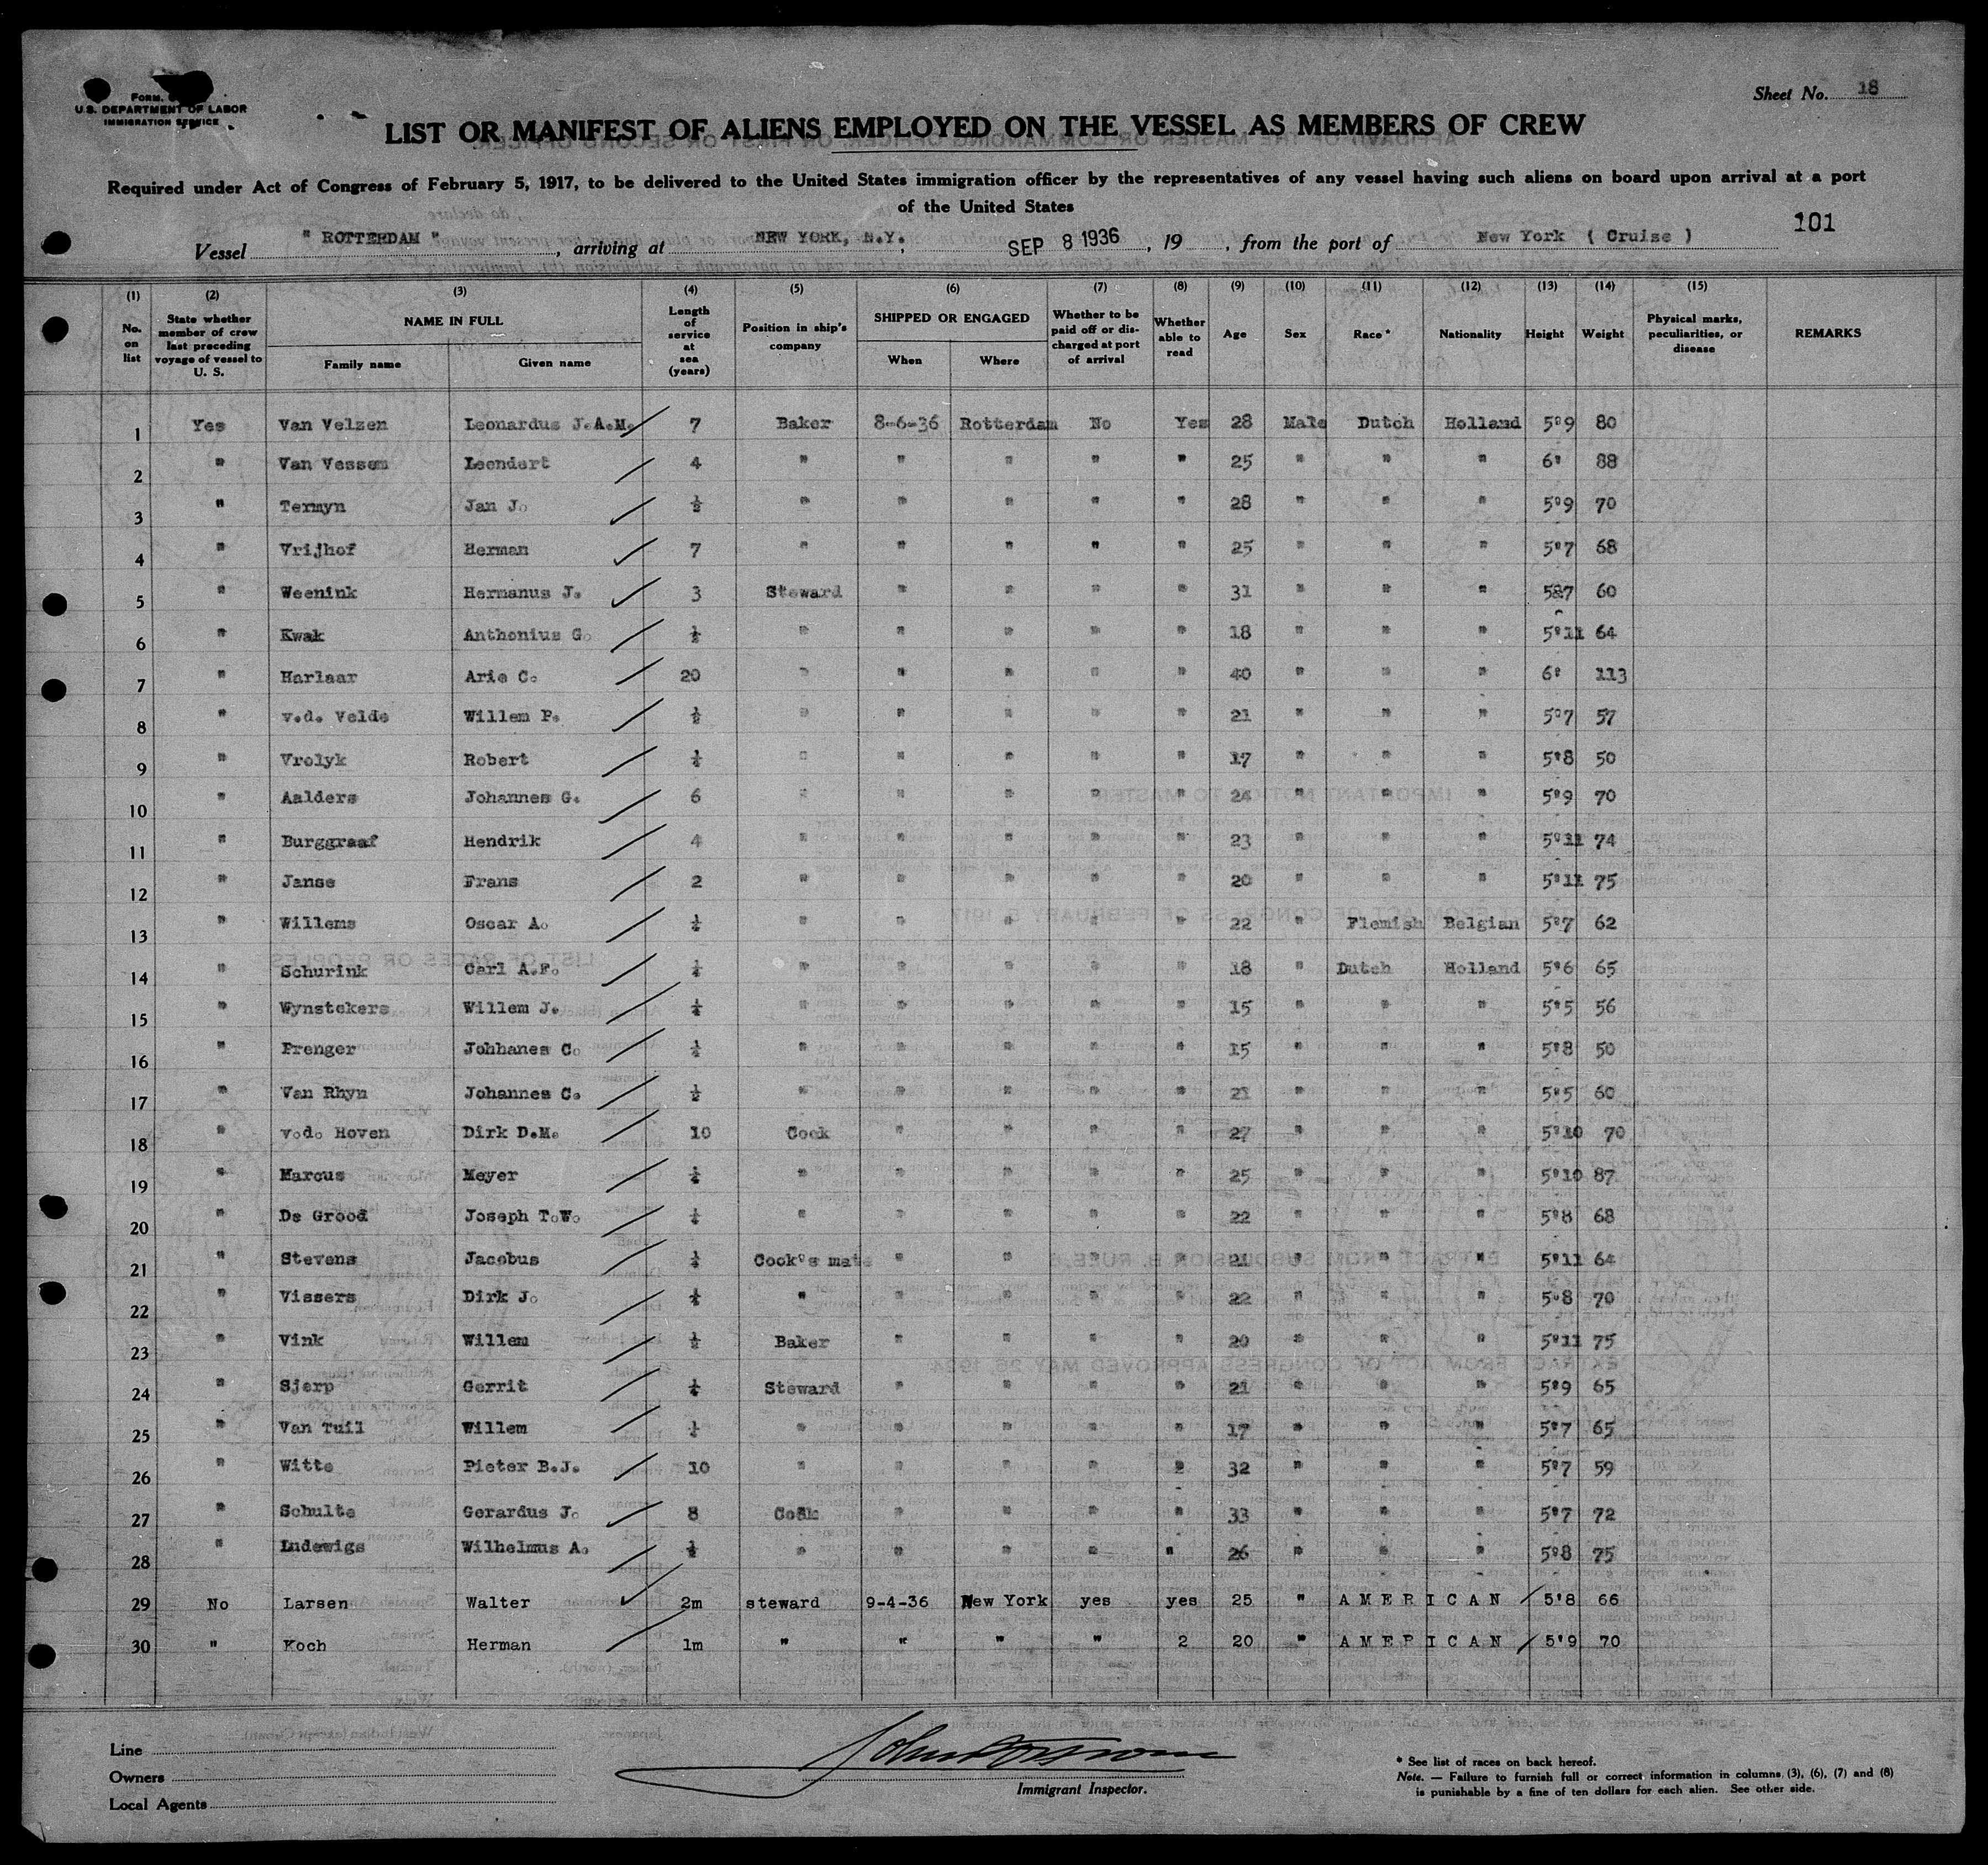 FORM.
U.S. DEPARTMENT OF LABOR
IMMIGRATION SERVICE
Sheet No. 18
LIST OR MANIFEST OF ALIENS EMPLOYED ON THE VESSEL AS MEMBERS OF CREW
Required under Act of Congress of February 5, 1917, to be delivered to the United States immigration officer by the representatives of any vessel having such aliens on board upon arrival at a port
of the United States
101
Vessel " ROTTERDAM ", arriving at NEW YORK, N.Y., SEP 8 1936, 19 , from the port of New York ( Cruise )
(1) (2) (3) (4) (5) (6) (7) (8) (9) (10) (11) (12) (13) (14) (15)
No. on list State whether member of crew last preceding voyage of vessel to U. S. NAME IN FULL Family name Given name Length of service at sea (years) Position in ship's company SHIPPED OR ENGAGED When Where Whether to be paid off or discharged at port of arrival Whether able to read Age Sex Race* Nationality Height Weight Physical marks, peculiarities, or disease REMARKS
1 Yes Van Velzen Leonardus J.A.M. 7 Baker 8-6-36 Rotterdam No Yes 28 Male Dutch Holland 5'9 80
2 " Van Vessem Leendert 4 " " " " " 25 " " " 6' 88
3 " Termyn Jan J. ½ " " " " " 28 " " " 5'9 70
4 " Vrijhof Herman 7 " " " " " 25 " " " 5'7 68
5 " Weenink Hermanus J. 3 Steward " " " " 31 " " " 5'7 60
6 " Kwak Anthonius G. ½ " " " " " 18 " " " 5'11 64
7 " Harlaar Arie C. 20 " " " " " 40 " " " 6' 113
8 " v.d. Velde Willem P. ½ " " " " " 21 " " " 5'7 57
9 " Vrolyk Robert ¼ " " " " " 17 " " " 5'8 50
10 " Aalders Johannes G. 6 " " " " " 24 " " " 5'9 70
11 " Burggraaf Hendrik 4 " " " " " 23 " " " 5'11 74
12 " Janse Frans 2 " " " " " 20 " " " 5'11 75
13 " Willems Oscar A. ¼ " " " " " 22 " Flemish Belgian 5'7 62
14 " Schurink Carl A.F. ¼ " " " " " 18 " Dutch Holland 5'6 65
15 " Wynstekers Willem J. ¼ " " " " " 15 " " " 5'5 56
16 " Prenger Johhanes C. ¼ " " " " " 15 " " " 5'8 50
17 " Van Rhyn Johannes C. ½ " " " " " 21 " " " 5'5 60
18 " v.d. Hoven Dirk D.M. 10 Cook " " " " 27 " " " 5'10 70
19 " Marcus Meyer ¼ " " " " " 25 " " " 5'10 87
20 " De Grood Joseph T.W. ¼ " " " " " 22 " " " 5'8 68
21 " Stevens Jacobus ¼ Cook's mate " " " " 21 " " " 5'11 64
22 " Vissers Dirk J. ¼ " " " " " 22 " " " 5'8 70
23 " Vink Willem ½ Baker " " " " 20 " " " 5'11 75
24 " Sjerp Gerrit ¼ Steward " " " " 21 " " " 5'9 65
25 " Van Tuil Willem ¼ " " " " " 17 " " " 5'7 65
26 " Witte Pieter B.J. 10 " " " " 2 32 " " " 5'7 59
27 " Schulte Gerardus J. 8 Cook " " " " 33 " " " 5'7 72
28 " Ludewigs Wilhelmus A. ½ " " " " " 26 " " " 5'8 75
29 No Larsen Walter 2m steward 9-4-36 New York yes yes 25 " AMERICAN 5'8 66
30 " Koch Herman 1m " " " " 2 20 " AMERICAN 5'9 70
Line
Owners
Local Agents
Immigrant Inspector.
* See list of races on back hereof.
Note. — Failure to furnish full or correct information in columns (3), (6), (7) and (8)
is punishable by a fine of ten dollars for each alien. See other side.